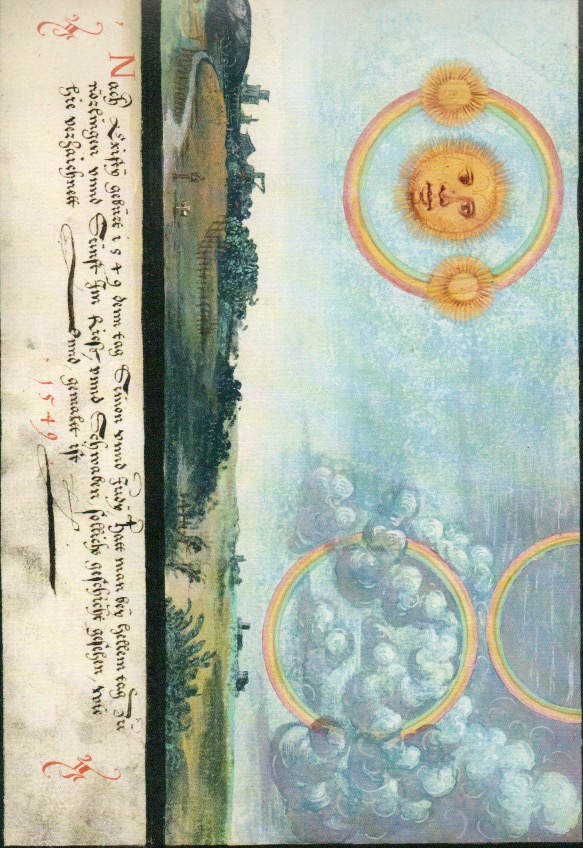 Nach Cristÿ gebürt 1549 denn tag Simon vnnd Judÿ hatt man beÿ hellem tag zů
nörlingen vnnd Sünst Jm Riess, vnnd Schwaben, sollichs geschicht gesehen, wie
hie verzaichnett vnnd, gemaltt ist
1549